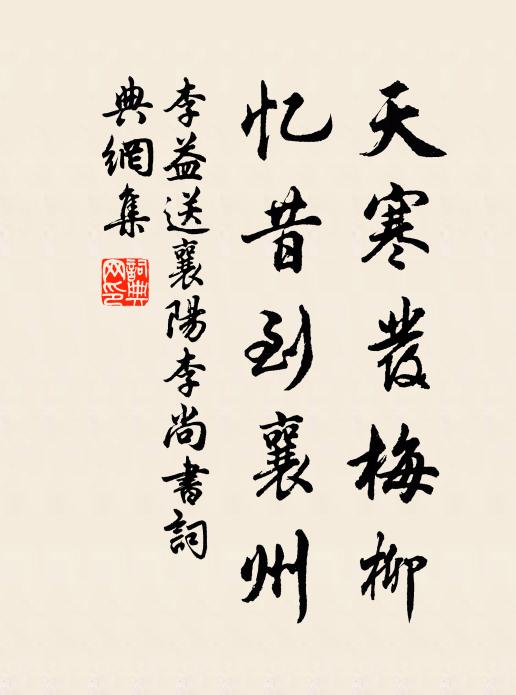 天寒發梅柳
忆昔到襄州
李益送襄陽李尚書詞
典網集
詞典网印